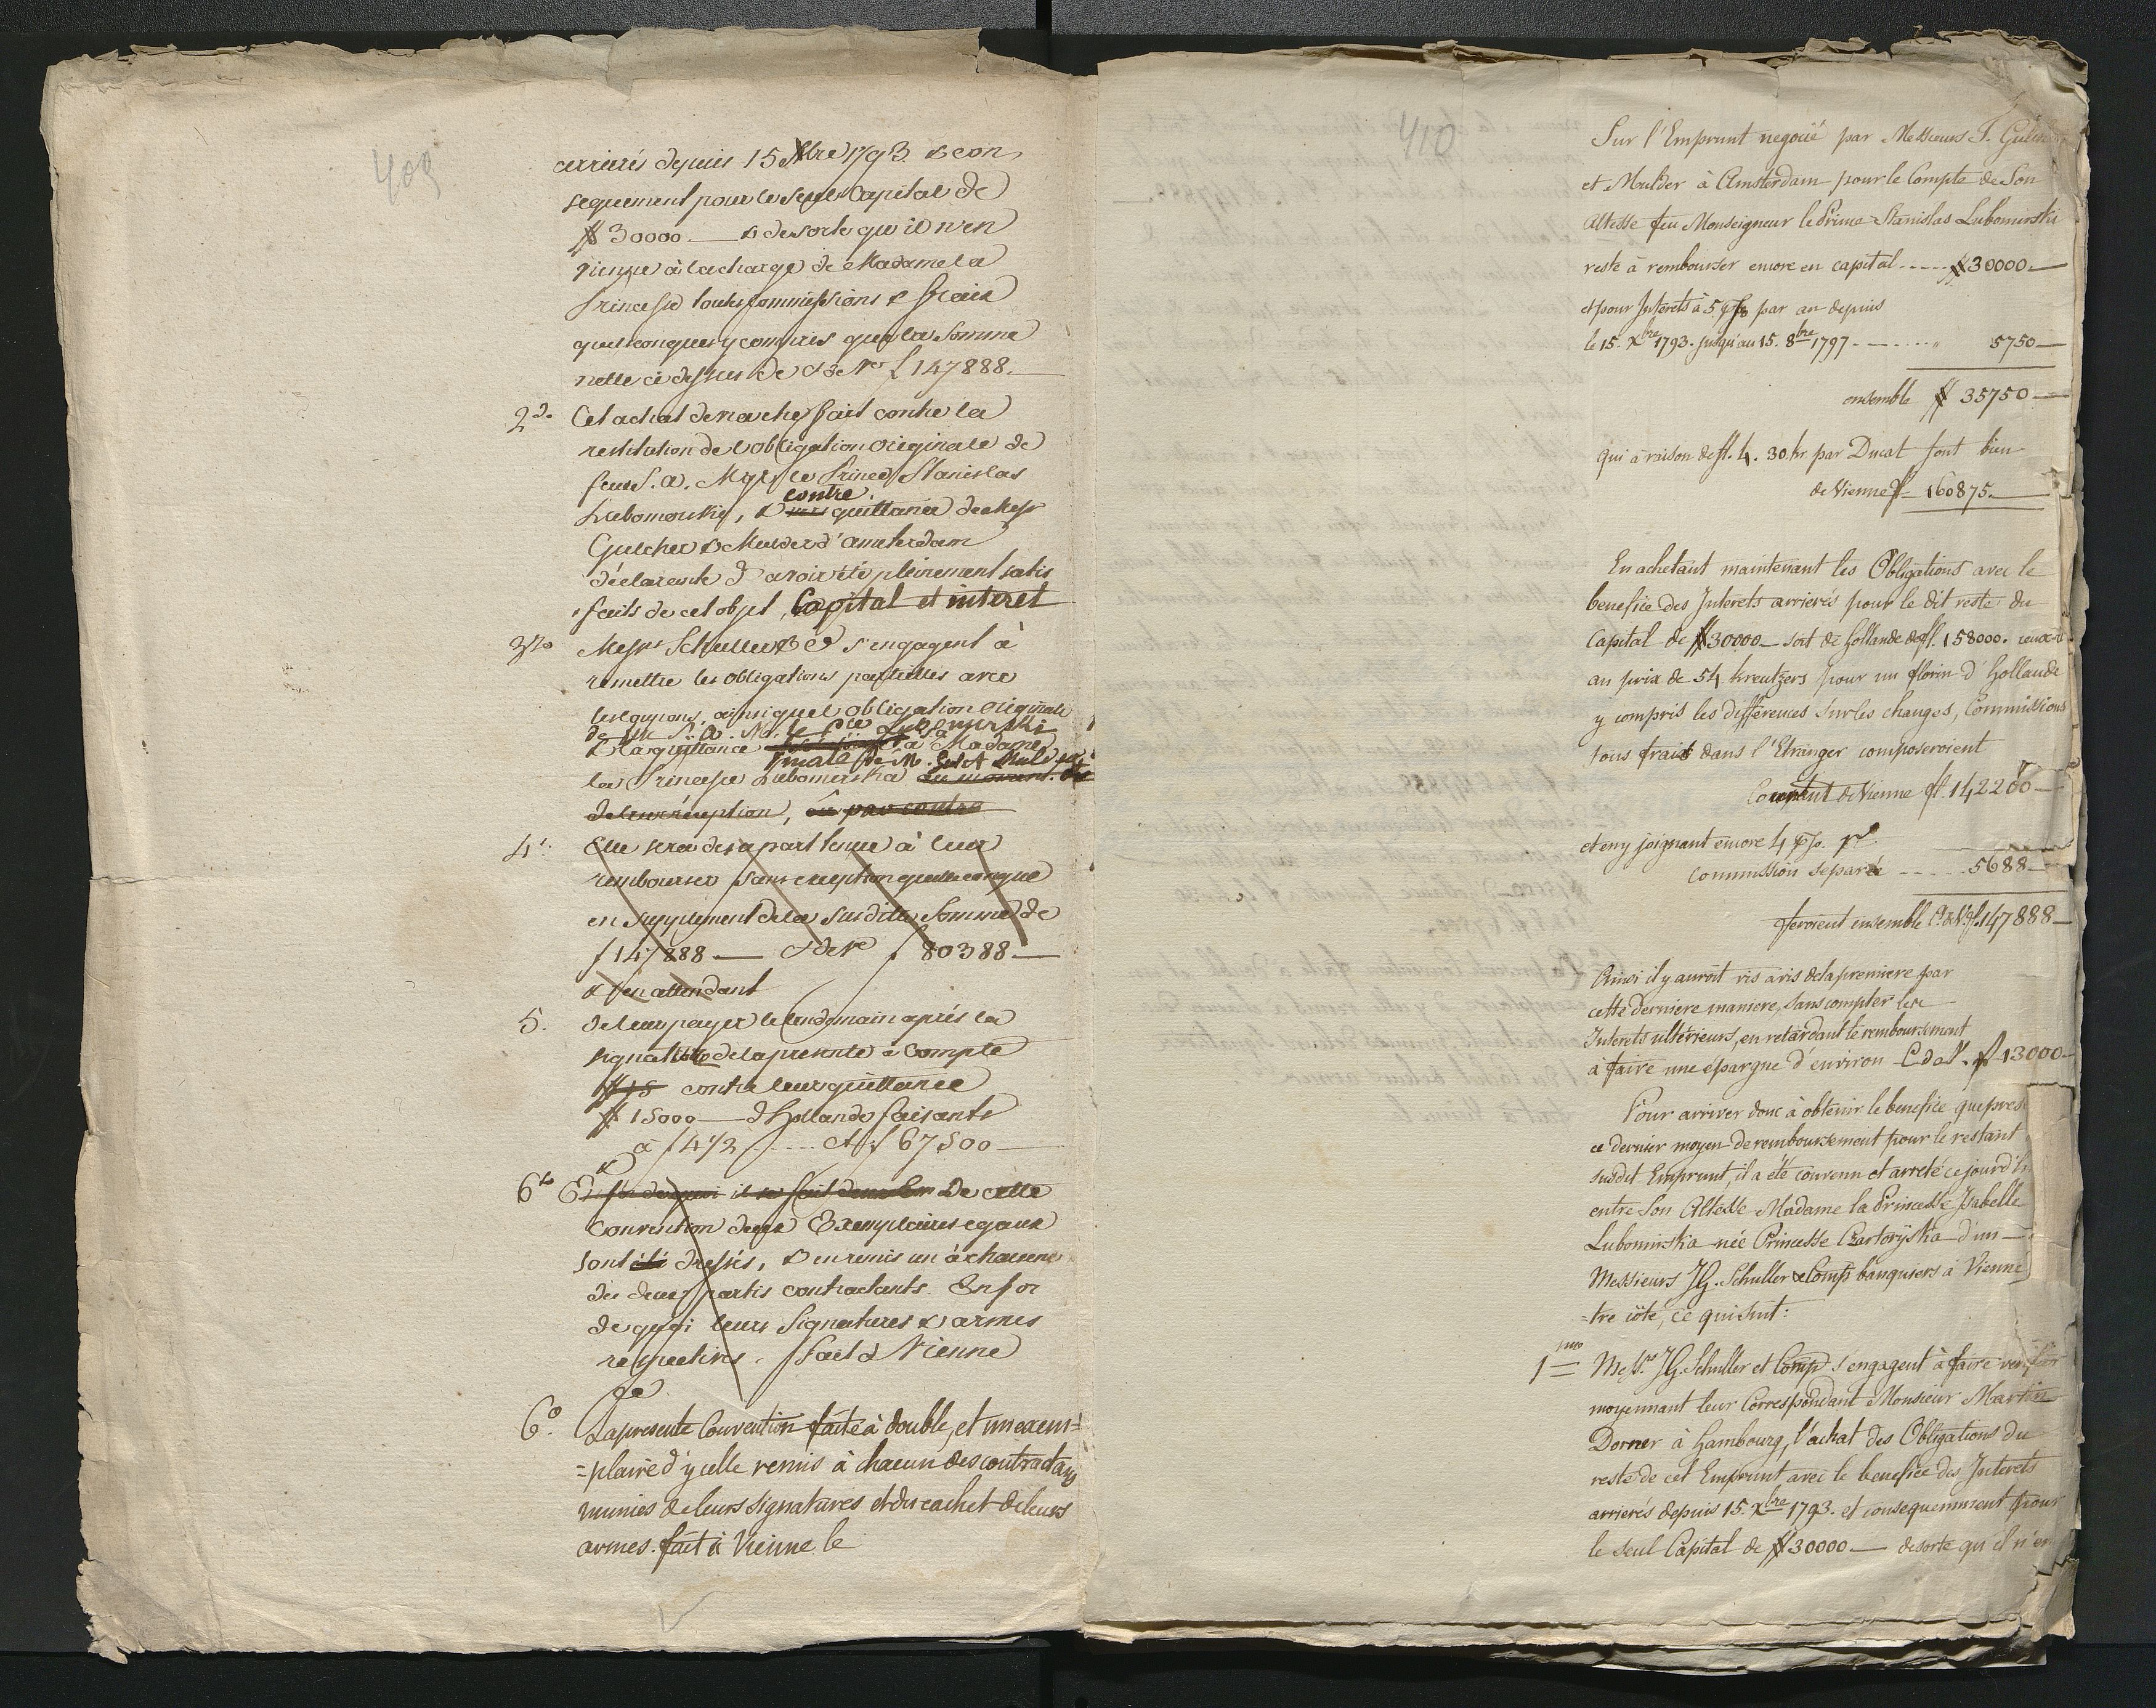 409
arrierés depuis 15 Xbre 1793. & con
sequement pour le seul Capital de
# 30000 — & desorte qu'il n'en
vienne à la charge de Madame la
Princesse toutes commissions & frais
quelconques y compris que la somme
nette ci dessus de C de Ve f 147888.—
2do Cet achat de rache fait contre la
restitution de l'obligation originale de
feu S. A. Mgr le Prince Stanislas
contre
Lubomorski, & quittance de Mess
Gulcher & Mulder d'amsterdam
déclarant d'avoir été pleinement satis
faits de cet objet, Capital et interet
3tio Messrs Schuller & C s'engagent à
remettre les obligations partielles avec
les coupons, ainsi que l'obligation originale
de feu S. A. M. le Pce Lubomirski
& la quittance à sa Madame
finale de M. Gul et Muld par
la Princesse Lubomirska au moment de
de leur réception, et par contre
4to Elle sera de sa part tenue à leur
rembourser sans exception quelconque
en supplement de la susditte somme de
f 147888 — C de Ve f 80388 —
& en attendant
5. de leur payer le lendemain aprés la
signature de la presente à compte
# 15 contre leur quittance
# 15000 — d'Hollande faisants
à f 4 1/2 .... f 67500 —
6to En foi de quoi il se fait De cette
Convention deux Exemplaires egaux
sont été dressés, & en remis un à chacune
des deux partis contractants. En foi
de quoi leurs Signatures & armes
respectives. fait à Vienne
ce
6o. La presente Convention faite à double, et un exem=
=plaire d'ycelle remis à chacun des contractans
munies de leurs signatures et du cachet de leurs
armes. fait à Vienne le
410
Sur l'Emprunt negocié par Messieurs T. Gulcher
et Mulder à Amsterdam pour le Compte de Son
Altesse feu Monseigneur le Prince Stanislas Lubomirski
reste à rembourser encore en capital ----- # 30000.—
et pour Interets à 5 p% par an depuis
le 15. Xbre 1793. jusqu'au 15. 8bre 1797 - - - - - „ 5750 —
ensemble # 35750 —
qui à raison de fl. 4. 30 kr par Ducat font bien
de Vienne f — 160875.—
En achetant maintenant les Obligations avec le
benefice des Interets arrierés pour le dit reste du
Capital de # 30000 — soit de hollande de fl. 158000.
au prix de 54 kreutzers pour un florin d'hollande
y compris les differences sur les changes, Commissions
tous frais dans l'Etranger composeroient
Courant de Vienne fl. 142200 —
et en y joignant encore 4 p%. pr.
Commission séparée - - - - - 5688 —
feroient ensemble C. de V. fl. 147888 —
Ainsi il y auroit vis à vis de la premiere par
cette derniere maniere, sans compter les
Interets ulterieurs, en retardant le remboursement
à faire une épargne d'environ C. de V. f 13000 —
Pour arriver donc à obtenir le benefice que pres
ce dernier moyen de remboursement pour le restant
susdit Emprunt, il a été convenu et arreté ce jourd'h
entre Son Altesse Madame la Princesse Isabelle
Lubomirska née Princesse Czartoryska d'un —
Messieurs JG. Schuller & Comp banquiers à Vienne
=tre côté, ce qui suit:
1mo Messrs. JG. Schuller et Comp s'engagent à faire verifier
moyennant leur Correspondant Monsieur Martin
Dorner à hambourg, l'achat des Obligations du
reste de cet Emprunt avec le benefice des Interets
arrierés depuis 15. Xbre 1793. et consequemment pour
le seul Capital de # 30000 — desorte qu'il n'en